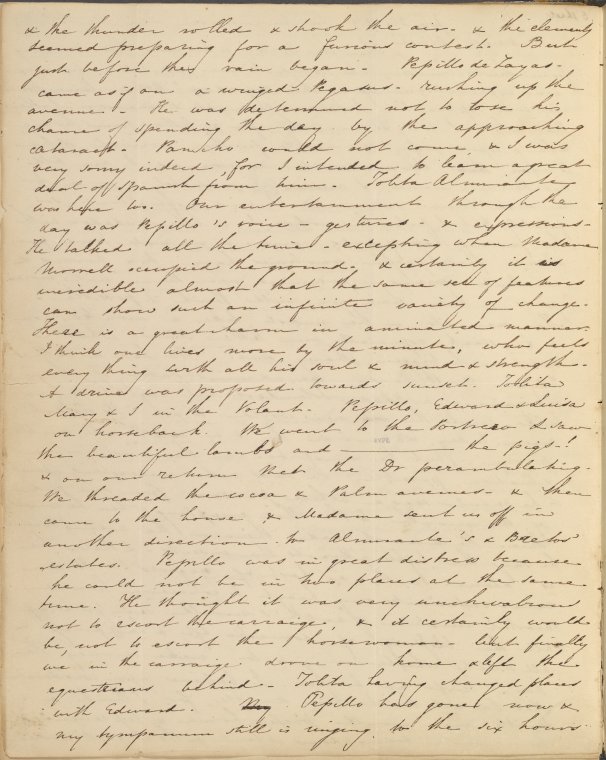 & the thunder rolled & shook the air - & the elements
seemed preparing for a furious contest. But
just before the rain began - Pepillo de Zayas -
came as if on a winged Pegasus - rushing up the
avenue - He was determined not to lose his
chance of spending the day by the approaching
cataract - Pancho could not come, & I was
very sorry indeed, for I intended to learn a great
deal of Spanish from him - Tolita Almirante
was here too. Our entertainment through the
day was Pepillo's voice - gestures - & expressions -
He talked all the time - excepting when Madame
Morrell occupied the ground, & certainly it is
incredible almost that the same set of features
can show such an infinite variety of change -
There is a great charm in animated manner.
I think one lives more by the minute, who feels
every thing with all his soul & mind & strength -
A drive was proposed towards sunset. Tolita
Mary & I in the Volant - Pepillo, Edward & Luisa
on horseback. We went to the Portrero & saw
the beautiful lambs and ——— the pigs -!
& on our return met the Dr perambulating -
We threaded the cocoa & Palm avenues - & then
came to the house & Madame sent us off in
another direction to Almirante's &
estates. Pepillo was in great distress because
he could not be in two places at the same
time. He thought it was very unchivalrous
not to escort the carraige, & it certainly would
be, not to escort the horsewoman - but finally
we in the carraige drove on home & left the
equestrians behind - Tolita having changed places
with Edward. Pepillo has gone now &
my tympanum still is ringing to the six hours